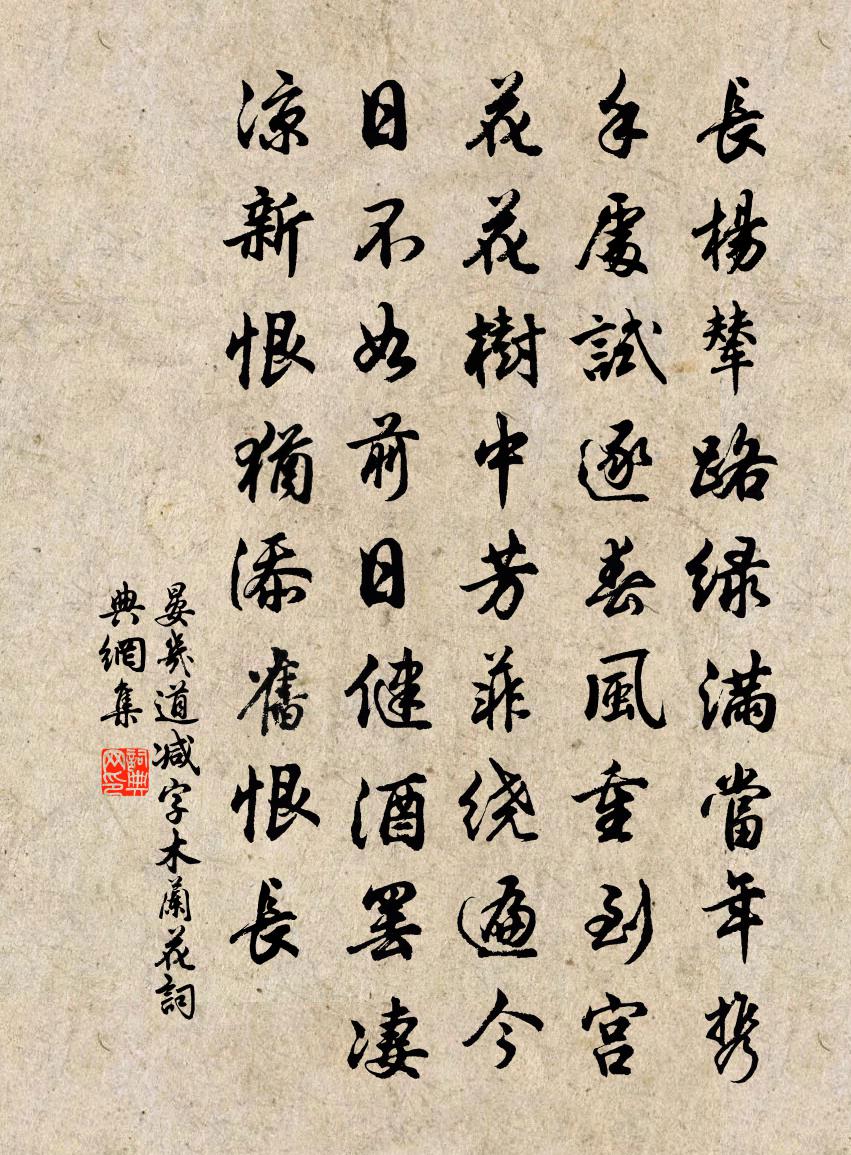 長楊輦路緑滿當年携
手處試逐春風重到宫
花花樹中芳菲绕遍今
日不如前日健酒罢凄
凉新恨猶添舊恨長
晏幾道减字木蘭花詞
典網集
詞典
网印